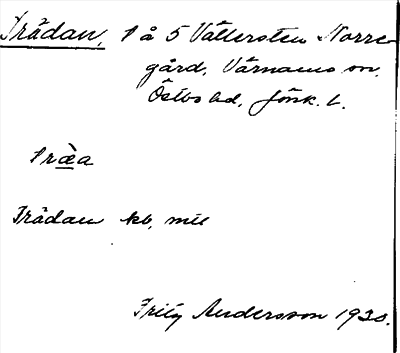 Trädan, 1 å 5 Vällersten Norre-
gård, Värnamo sn.
Östbo hd, Jönk. l.
träa
Trädan kb,
Andersson 1930.